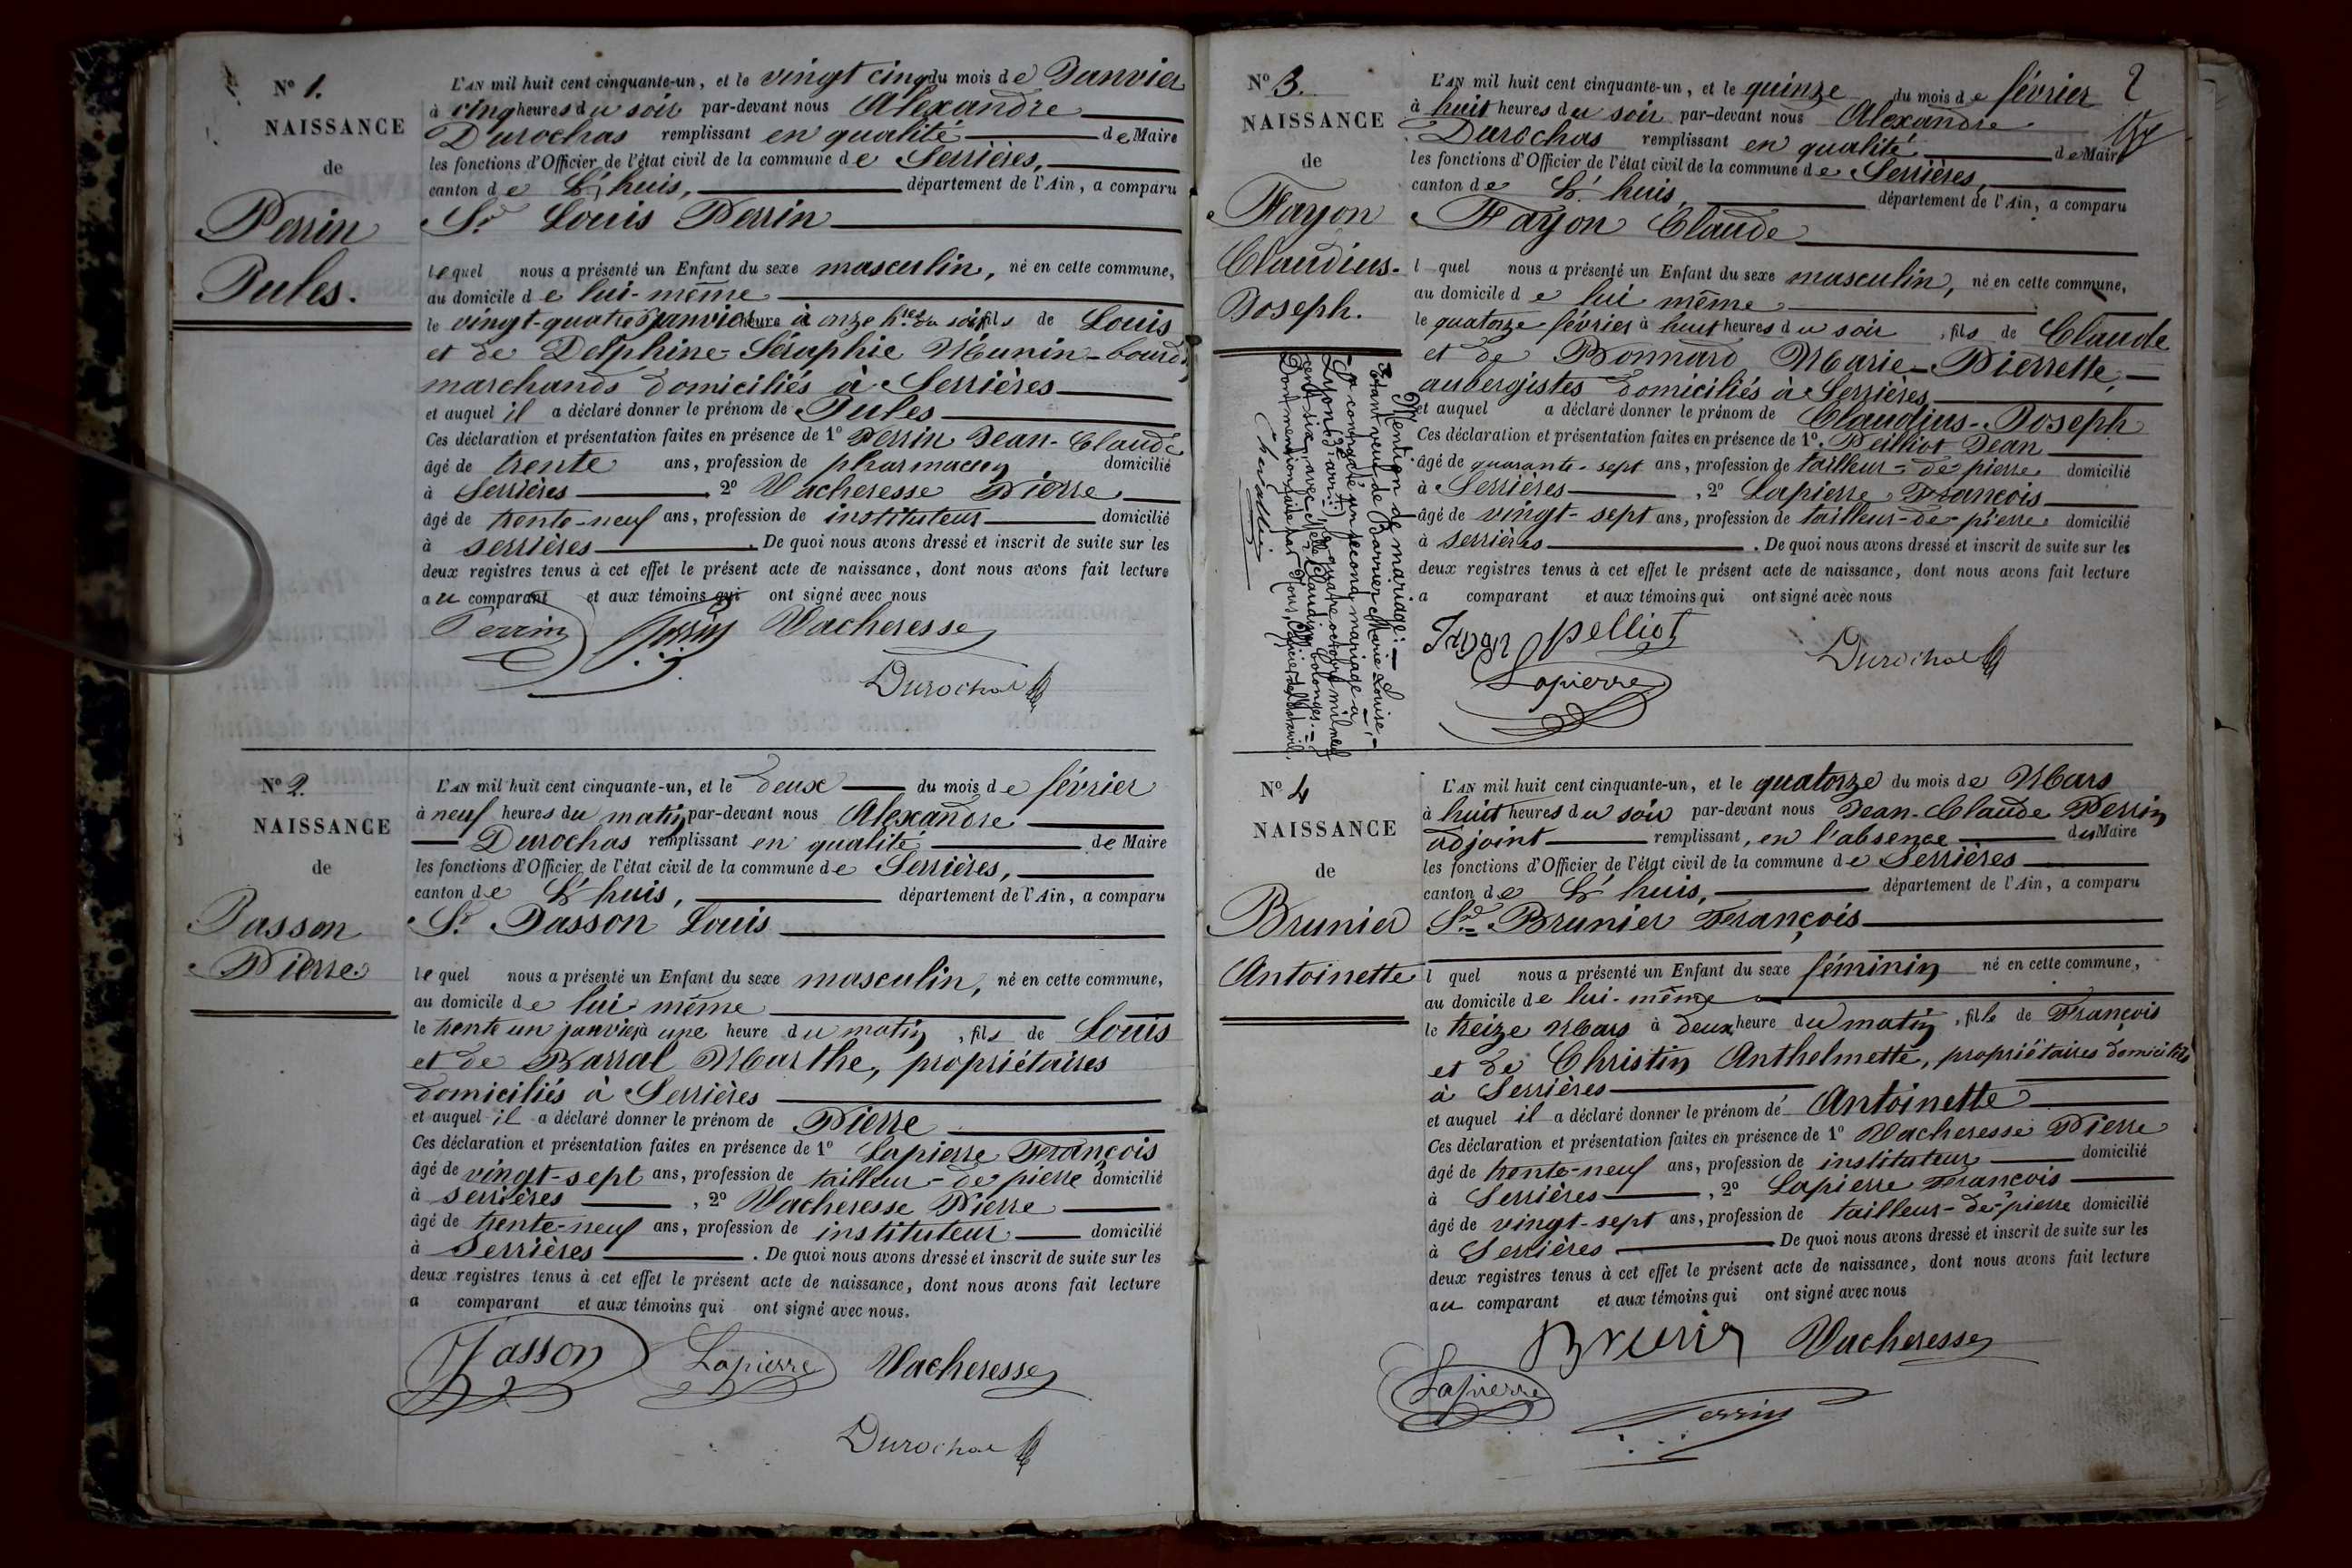 N° 1.
NAISSANCE
de
Perrin
Jules.
L'AN mil huit cent cinquante-un, et le vingt cinq du mois de Janvier
à cinq heures du soir par-devant nous Alexandre
Durochas remplissant en qualité de Maire
les fonctions d'Officier de l'état civil de la commune de Serrières,
canton de L'huis, département de l'Ain, a comparu
Sr. Louis Perrin
lequel nous a présenté un Enfant du sexe masculin, né en cette commune,
au domicile de lui-même
le vingt-quatre janvier heure à onze hres du soir fils de Louis
et de Delphine-Séraphie Munin-bourdin
marchands domiciliés à Serrières
et auquel il a déclaré donner le prénom de Jules
Ces déclaration et présentation faites en présence de 1° Perrin Jean-Claude
âgé de trente ans, profession de pharmacien domicilié
à Serrières 2° Vacheresse Pierre
âgé de trente-neuf ans, profession de instituteur domicilié
à serrières. De quoi nous avons dressé et inscrit de suite sur les
deux registres tenus à cet effet le présent acte de naissance, dont nous avons fait lecture
au comparant et aux témoins qui ont signé avec nous
Perrin Perrin Vacheresse
Durochas
N° 2.
NAISSANCE
de
Jasson
Pierre.
L'AN mil huit cent cinquante-un, et le deux du mois de février
à neuf heures du matin par-devant nous Alexandre
Durochas remplissant en qualité de Maire
les fonctions d'Officier de l'état civil de la commune de Serrières,
canton de L'huis, département de l'Ain, a comparu
Sr. Jasson Louis
lequel nous a présenté un Enfant du sexe masculin, né en cette commune,
au domicile de lui-même
le trente un janvier à une heure du matin, fils de Louis
et de Barral Marthe, propriétaires
domiciliés à Serrières
et auquel il a déclaré donner le prénom de Pierre
Ces déclaration et présentation faites en présence de 1° Lapierre François
âgé de vingt-sept ans, profession de tailleur-de pierre domicilié
à serrières, 2° Vacheresse Pierre
âgé de trente-neuf ans, profession de instituteur domicilié
à Serrières. De quoi nous avons dressé et inscrit de suite sur les
deux registres tenus à cet effet le présent acte de naissance, dont nous avons fait lecture
a comparant et aux témoins qui ont signé avec nous.
Jasson Lapierre Vacheresse
Durochas
2
N° 3.
NAISSANCE
de
Fayon
Claudius-
Joseph.
Mention de mariage:
Etant veuf de Barrier Marie Louise,
a contracté un second mariage à
Lyon, le quatre octobre mil neuf
cent six, avec Melle Claudine
Dont mention faite par Nous, Officier de l'état civil,
Chevallier
L'AN mil huit cent cinquante-un, et le quinze du mois de février
à huit heures du soir par-devant nous Alexandre
Durochas remplissant en qualité de Maire
les fonctions d'Officier de l'état civil de la commune de Serrières,
canton de L'huis département de l'Ain, a comparu
Fayon Claude
l quel nous a présenté un Enfant du sexe masculin, né en cette commune,
au domicile de lui même
le quatorze février à huit heures du soir, fils de Claude
et de Bonnard Marie-Pierrette,
aubergistes domiciliés à Serrières
et auquel a déclaré donner le prénom de Claudius-Joseph
Ces déclaration et présentation faites en présence de 1°. Peilliot Jean
âgé de quarante-sept ans, profession de tailleur-de pierre domicilié
à Serrières, 2° Lapierre François
âgé de vingt-sept ans, profession de tailleur-de-pierre domicilié
à serrières. De quoi nous avons dressé et inscrit de suite sur les
deux registres tenus à cet effet le présent acte de naissance, dont nous avons fait lecture
a comparant et aux témoins qui ont signé avec nous
pelliot
Durochas
Lapierre
N° 4
NAISSANCE
de
Brunier
Antoinette
L'AN mil huit cent cinquante-un, et le quatorze du mois de Mars
à huit heures du soir par-devant nous Jean-Claude Perrin
adjoint remplissant, en l'absence du Maire
les fonctions d'Officier de l'état civil de la commune de Serrières
canton de L'huis, département de l'Ain, a comparu
Sr. Brunier François
l quel nous a présenté un Enfant du sexe féminin né en cette commune,
au domicile de lui-même
le treize Mars à deux heure du matin, fille de François
et de Christin Anthelmette, propriétaires domiciliés
à Serrières
et auquel il a déclaré donner le prénom de Antoinette
Ces déclaration et présentation faites en présence de 1° Vacheresse Pierre
âgé de trente-neuf ans, profession de instituteur domicilié
à Serrières, 2° Lapierre François
âgé de vingt-sept ans, profession de tailleur-de-pierre domicilié
à Serrières De quoi nous avons dressé et inscrit de suite sur les
deux registres tenus à cet effet le présent acte de naissance, dont nous avons fait lecture
au comparant et aux témoins qui ont signé avec nous
Brunier Vacheresse
Lapierre Perrin